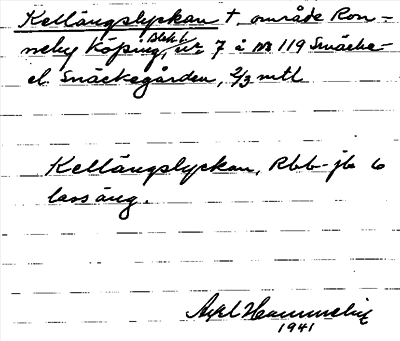 Kellängslyckan † område Ron-
neby köping, Blek. nr 7 å nr 119 Snäcke-
el. Snäckegården, 2/3 mtl
Kellängslyckan, Rbb-jb 6
lass äng.
Axel
1941